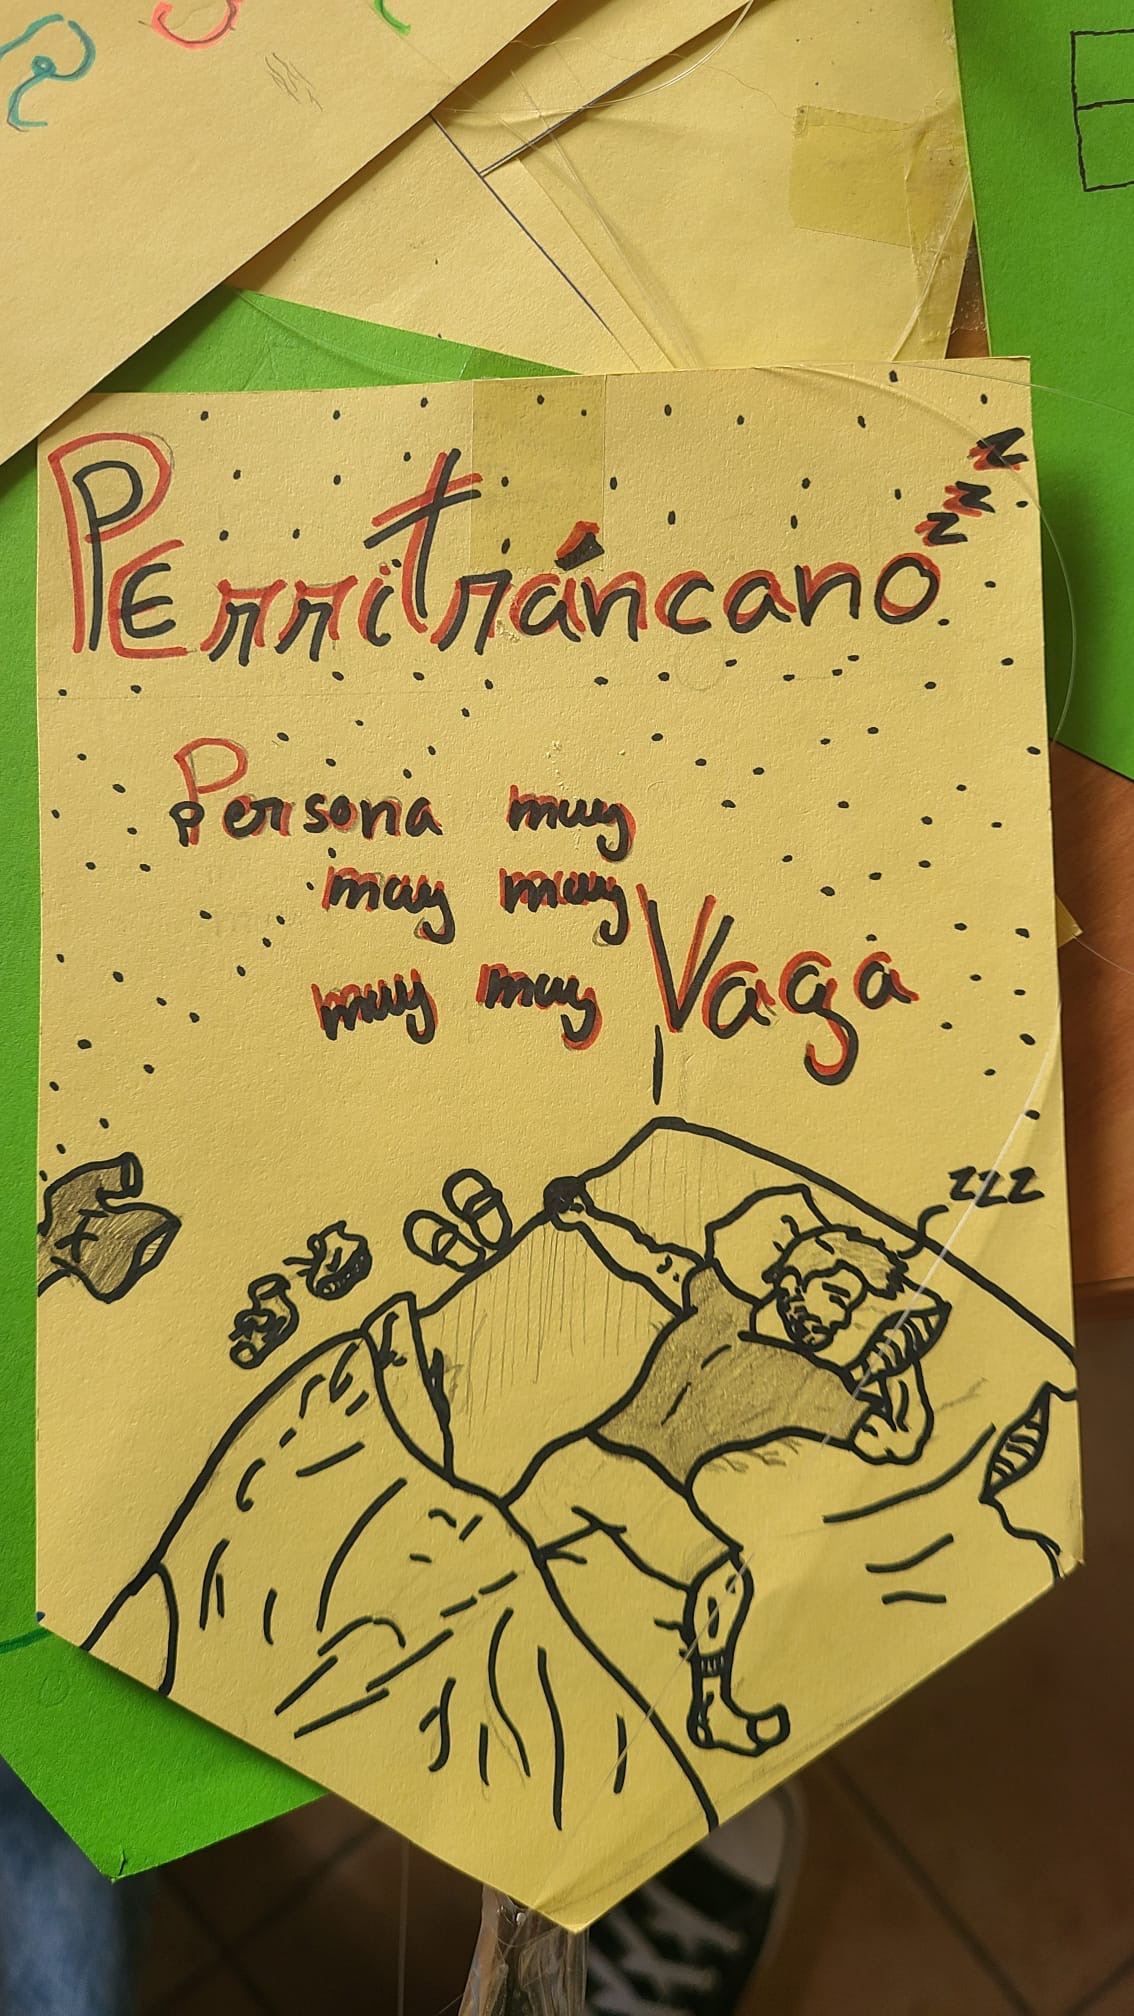 zzz
Perritráncano.
Persona muy
muy muy
muy muy Vaga
zzz